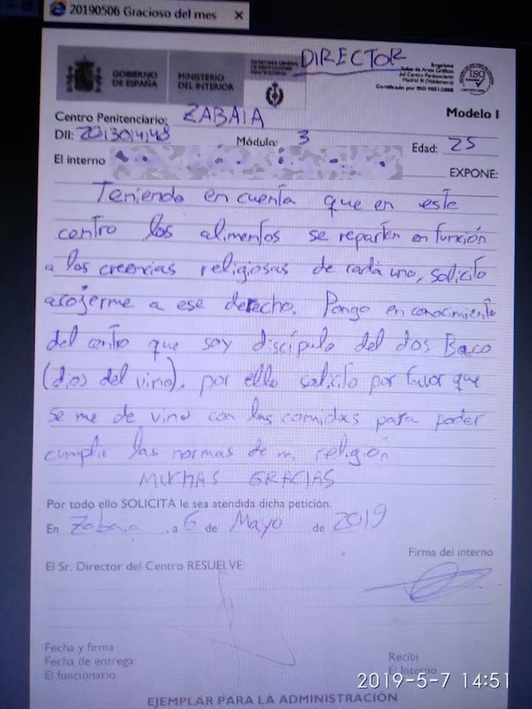 20190506 Gracioso del mes
DIRECTOR
GOBIERNO DE ESPAÑA
MINISTERIO DEL INTERIOR
ISO
Modelo I
Centro Penitenciario: ZABAIA
DII: 2013014148
Módulo: 3
Edad: 25
El interno
EXPONE:
Teniendo en cuenta que en este
centro los alimentos se reparten en función
a las creencias religiosas de cada uno, solicito
acojerme a ese derecho. Pongo en conocimiento
del centro que soy discípulo del dos Baco
(dios del vino), por ello solicito por favor que
se me de vino con las comidas para poder
cumplir las normas de mi religion
MUCHAS GRACIAS
Por todo ello SOLICITA le sea atendida dicha petición.
En Zabaia, a 6 de Mayo de 2019
Firma del interno
El Sr. Director del Centro RESUELVE:
Fecha y firma
Fecha de entrega
El funcionario
Recibí
El Interno
2019-5-7 14:51
EJEMPLAR PARA LA ADMINISTRACIÓN